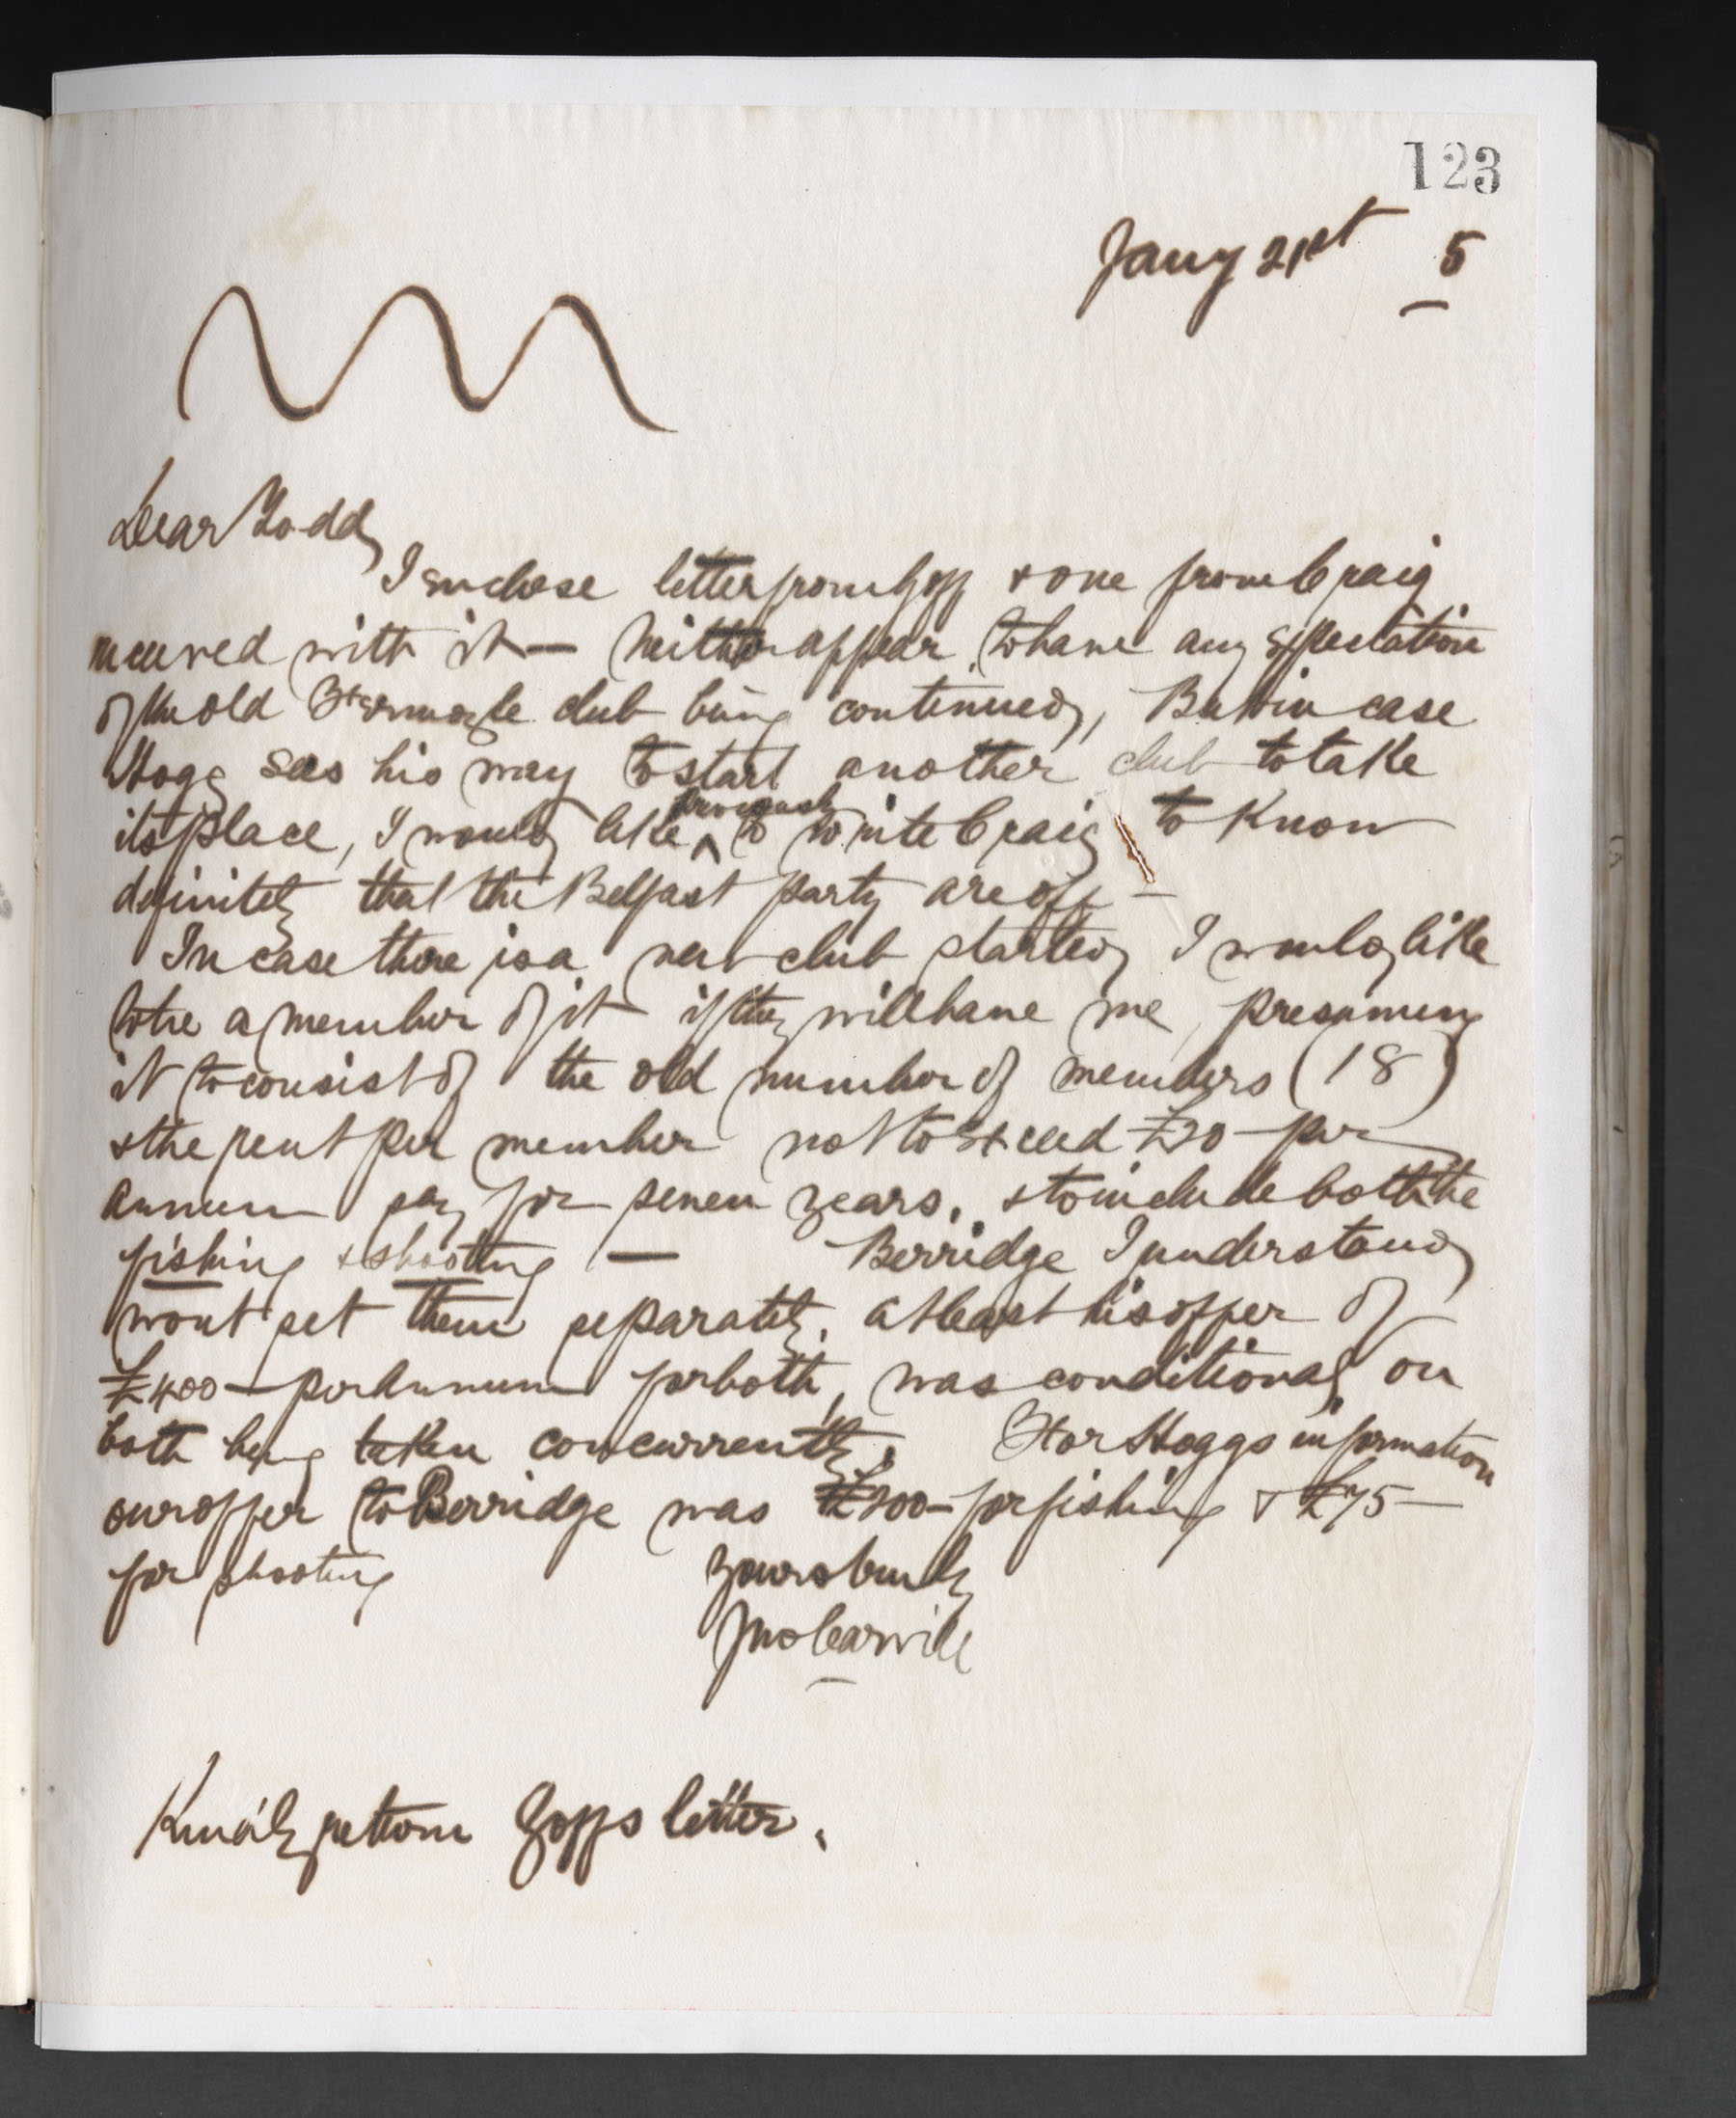 123
Jany 21st 5
Dear Todd,
I enclose letter from Goff & one from Craig
received with it — Neither appear to have any expectation
of the old Fermoyle club being continued, But in case
Hogg sees his way to start another club to take
its place, I would like previously to write Craig to know
definitely that the Belfast party are off —
In case there is a new club started I would like
to be a member of it if they will have me, presuming
it to consist of the old number of members (18)
& the rent per member not to exceed £20 - per
annum say for seven years, & to include both the
fishing & shooting — Berridge I understand
wont set them separately, at least his offer of
£400 - per annum for both, was conditional on
both being taken concurrently. For Hoggs information
our offer to Berridge was £200 - for fishing & £75 —
for shooting
Yours truly
Jno Carvill
Kindly return Goffs letter.